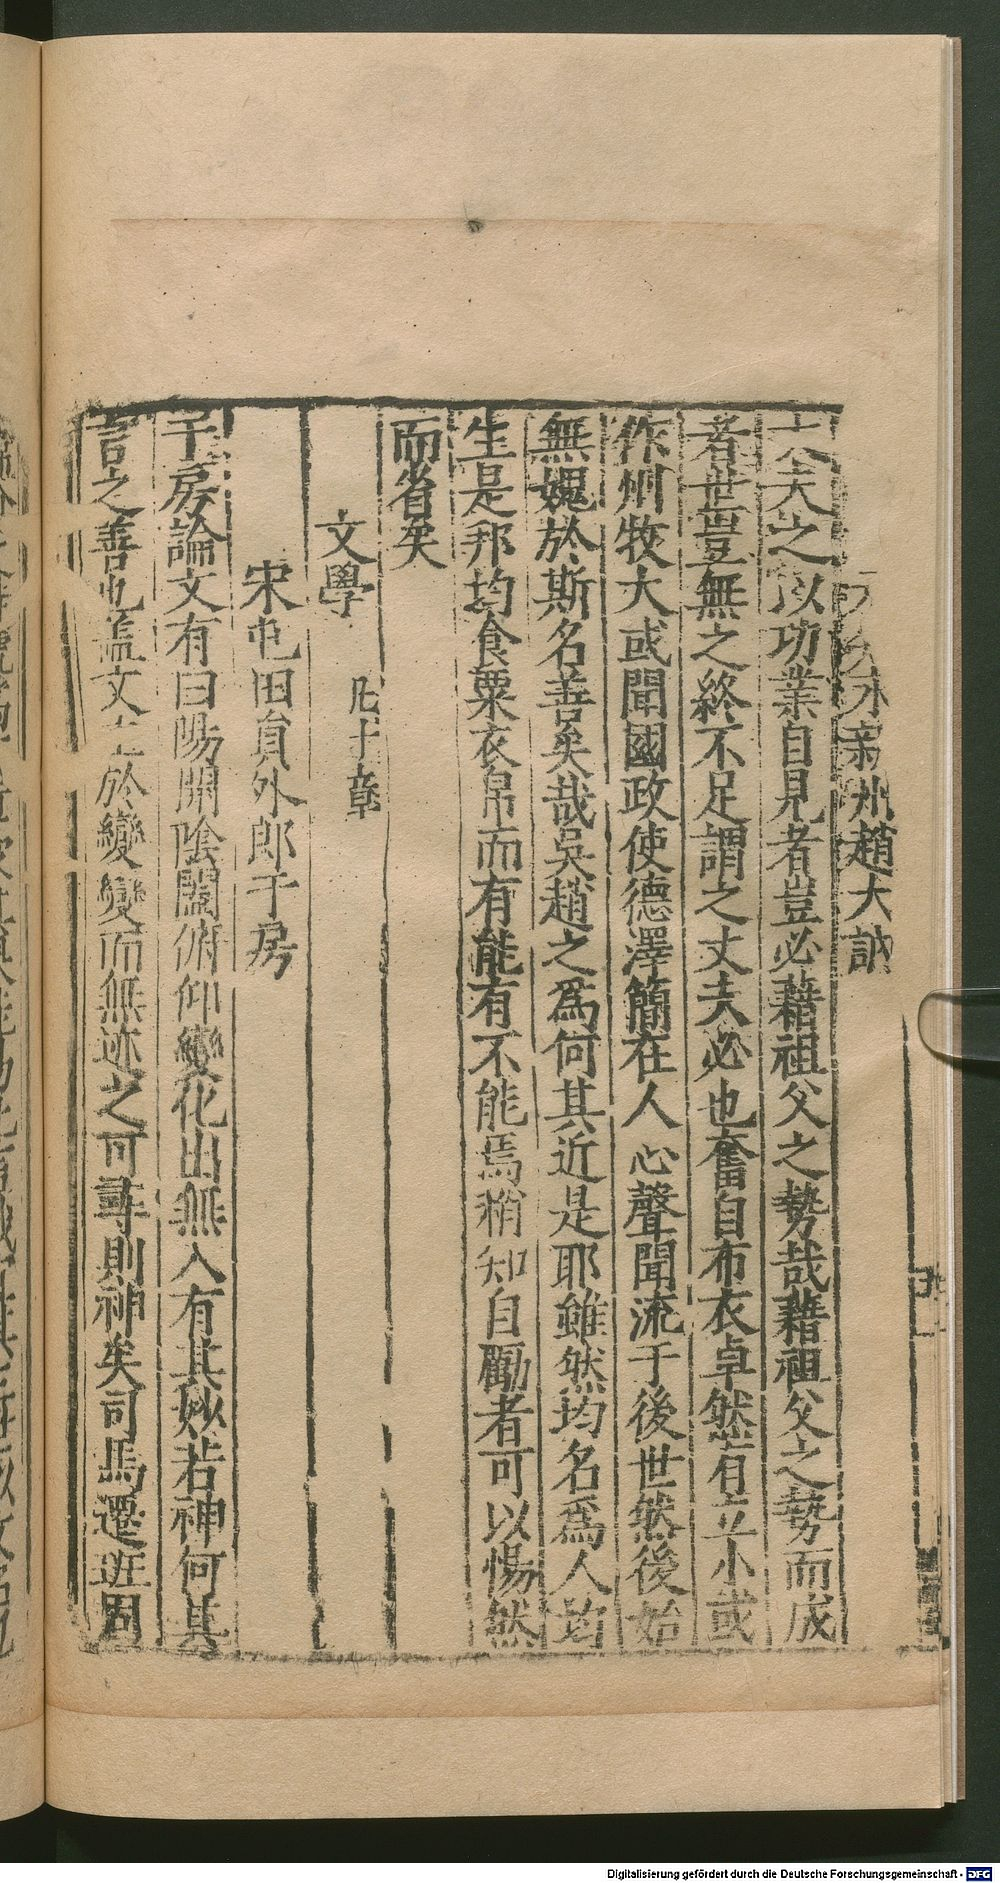 永新州趙大訥
大夫之以功業自見者豈必藉祖父之勢哉藉祖父之勢而成
者世豈無之終不足謂之丈夫必也奮自布衣卓然有立小或
作州牧大或聞國政使德澤簡在人心聲聞流于後世然後始
無媿於斯名善矣哉吳趙之爲何其近是耶雖然均名爲人均
生是邦均食粟衣帛而有能有不能焉稍知自勵者可以惕然
而省矣
文學 凡十章
宋屯田員外郎于房
于房論文有曰陽開陰闔俯仰變化出無入有其妙若神何其
言之善也蓋文主於變變而無迹之可尋則神矣司馬遷班固
Digitalisierung gefördert durch die Deutsche Forschungsgemeinschaft - DFG